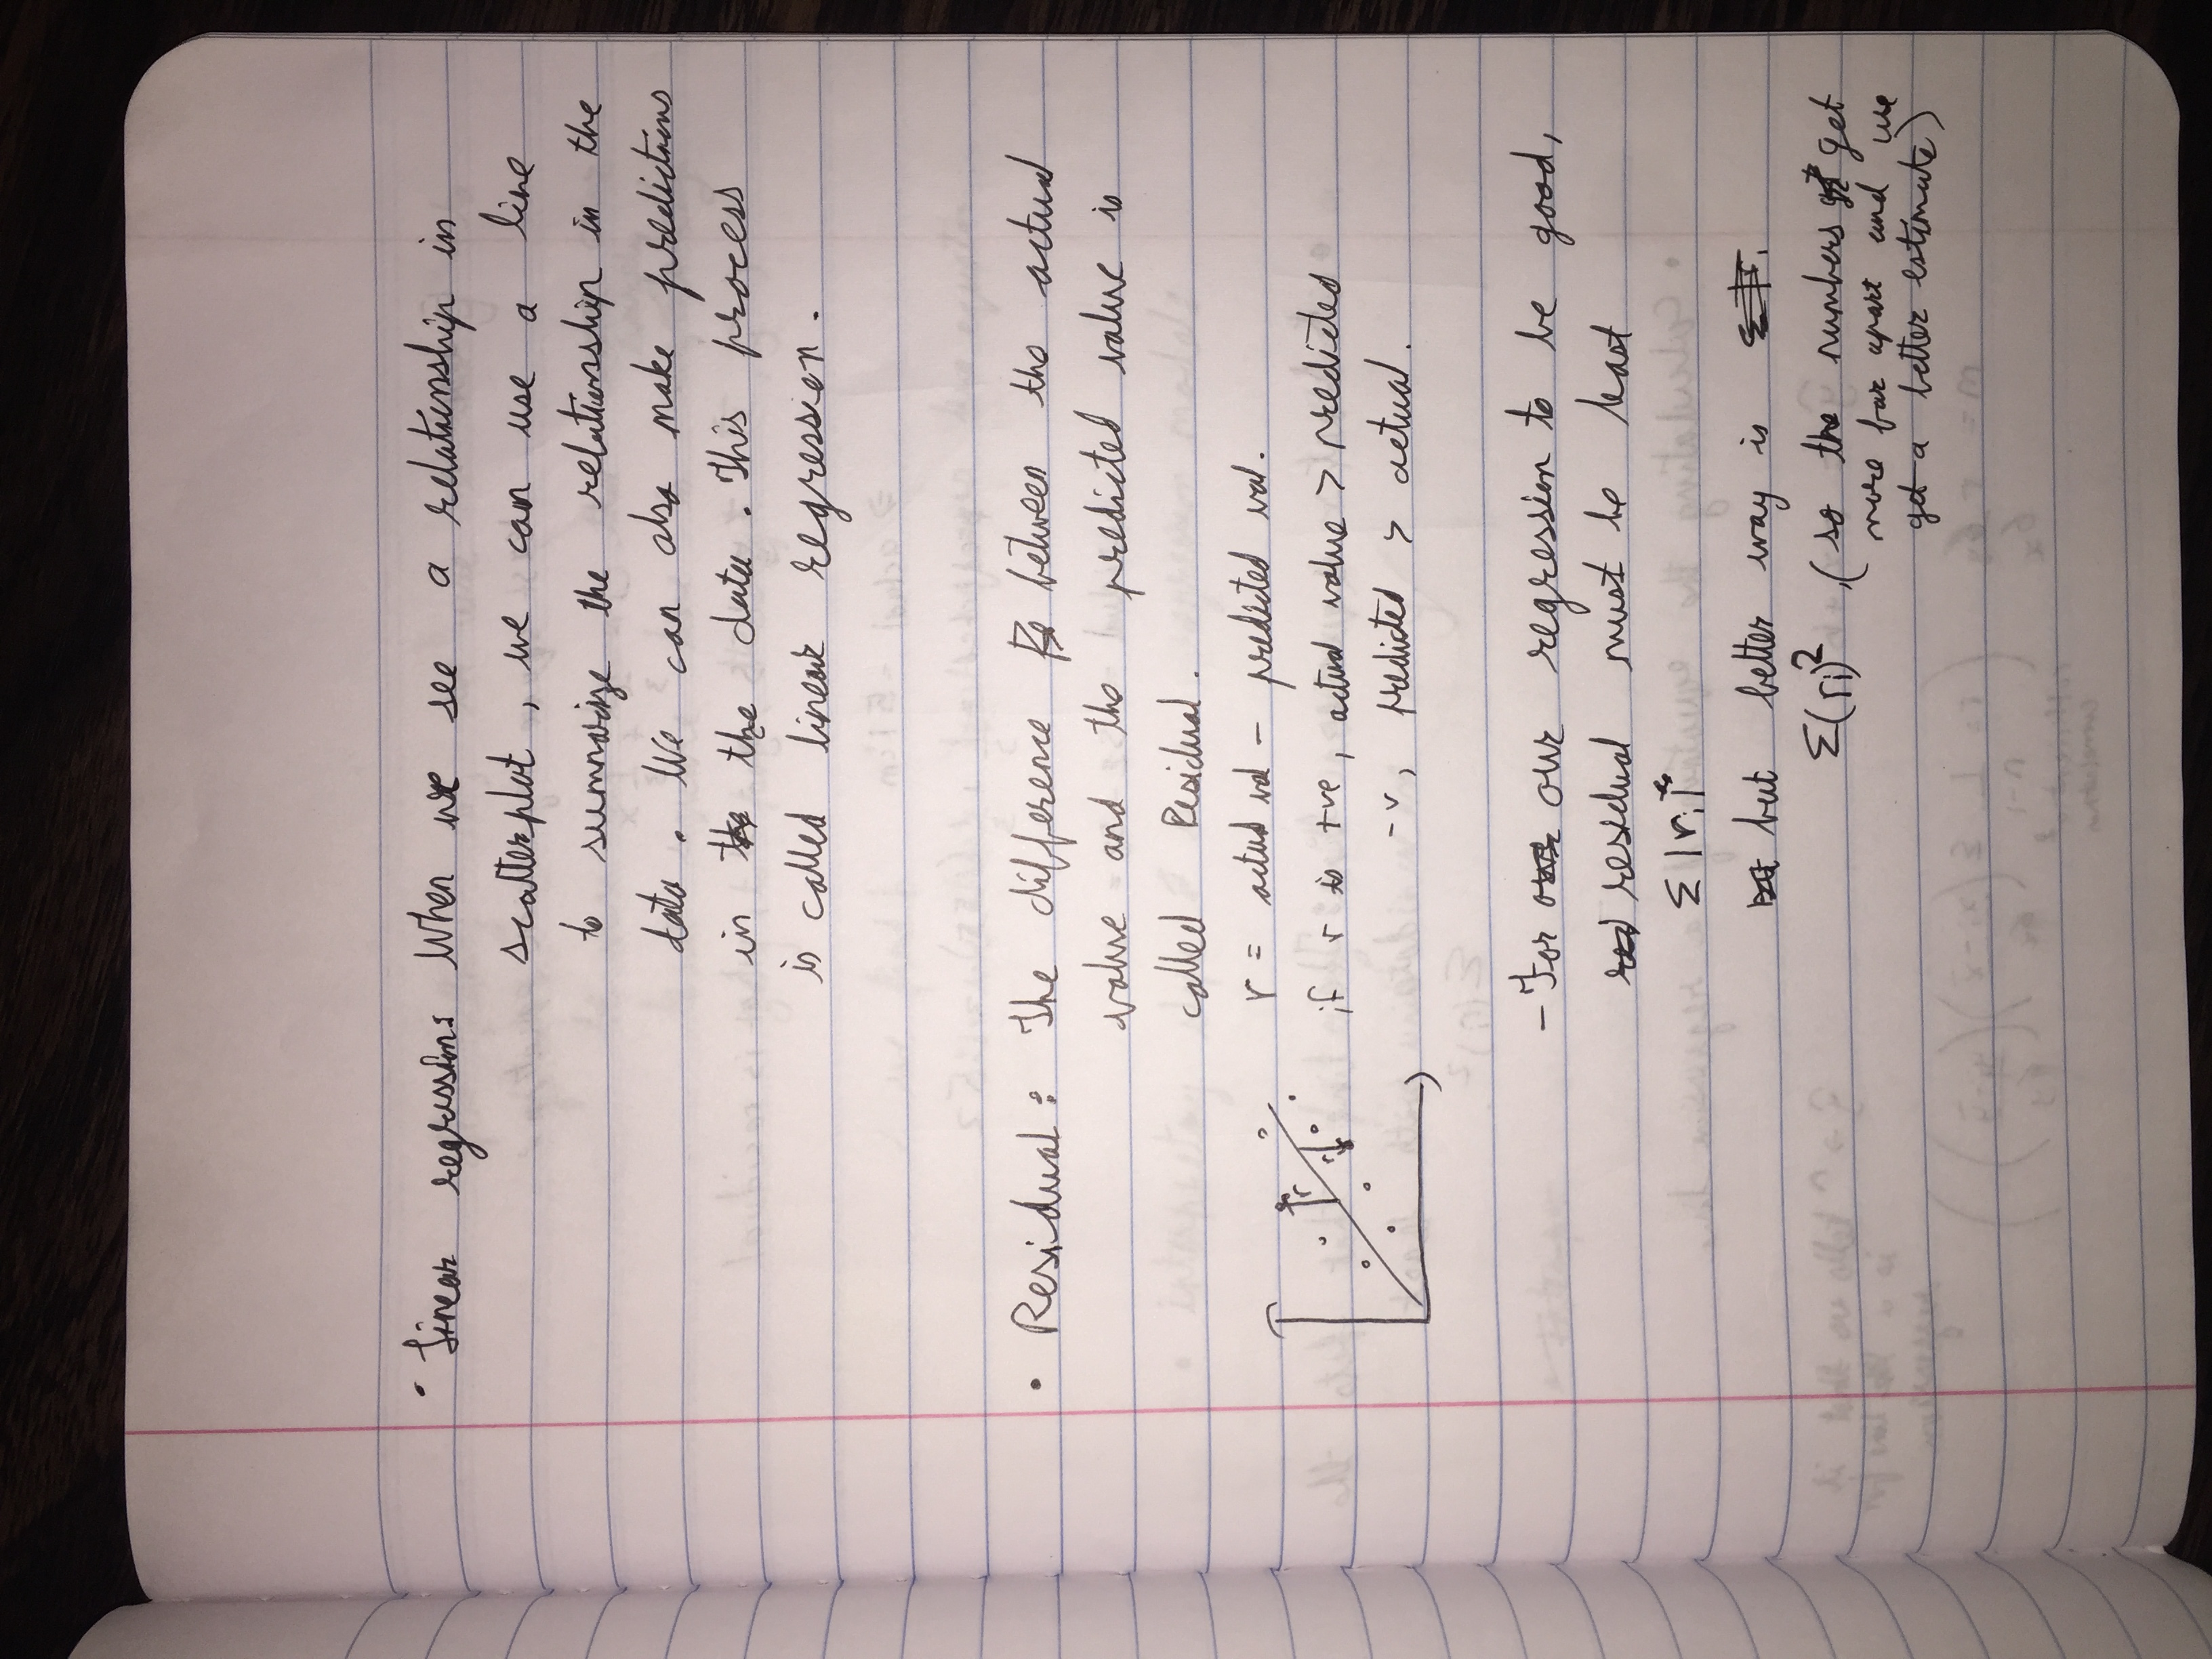 • Linear regression: When we see a relationship in
scatterplot, we can use a line
to summarize the relationship in the
data. We can also make predictions
in the the data. This process
is called linear regression.
• Residual: The difference Be between the actual
value and the predicted value is
called Residual.
r = actual val - predicted val.
if r is +ve, actual value > predicted
-v, predicted > actual.
r
r
- For our our regression to be good,
res residual must be least
Σ |ri|
but but better way is
Σ(ri)², (so the numbers get get
more far apart and we
get a better estimate)